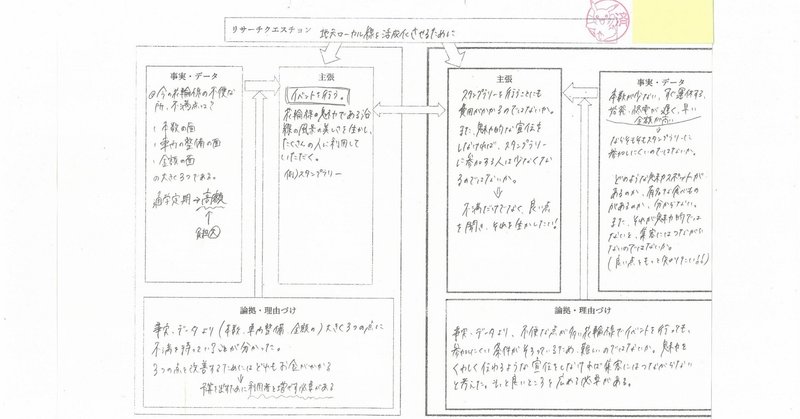 リサーチクエスチョン 地元ローカル線を活成化させるために
事実・データ
◎今の花輪線の不便な
所、不満点は?
・本数の面
・車内の整備の面
・金額の面
の大きく3つである。
通学定期→高額
↑
負担大
主張
イベントを行う。
花輪線の魅力である沿
線の風景の美しさを生かし、
たくさんの人に利用して
いただく。
例)スタンプラリー
論拠・理由づけ
事実・データより(本数、車内整備、金額の)大きく3つの点に
不満を持っていることが分かった。
3つの点を改善するためにはどれもお金がかかる
予算を出すために利用者を増やす必要がある
主張
スタンプラリーを行うことにも
費用がかかるのではないか。
また、魅力的な宣伝を
しなければ、スタンプラリー
に参加する人は少なくなる
のではないか。
⇓
不満だけでなく、良い点
を聞き、それを生かしたい!
事実・データ
本数が少ない、不運休する、
始発・終電が遅く、早い
金額が高い
→そもそもスタンプラリーに
参加しにくいのではないか。
どのような魅力スポットが
あるのか、有名な食べもの
があるのか、分からない。
また、それが魅力的では
ないと、集客にはつながら
ないのではないか。
(良い点をもっと知りたい!!)
論拠・理由づけ
事実・データより、不便な点が多い花輪線でイベントを行っても、
参加しにくい条件がそろっているため、難しいのではないか。魅力を
くわしく伝わるような宣伝をしなければ集客にはつながらない
と考えた。もっと良いところを広める必要がある。